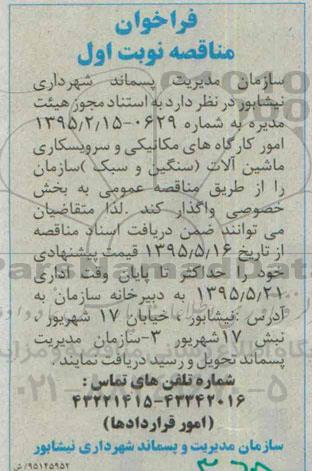 فراخوان
مناقصه نوبت اول
سازمان مدیریت پسماند شهرداری
نیشابور در نظر دارد به استناد مجوز هیئت
مدیره به شماره ۰۶۲۹-۱۳۹۵/۲/۱۵
امور کارگاه های مکانیکی و سرویسکاری
ماشین آلات (سنگین و سبک) سازمان
را از طریق مناقصه عمومی به بخش
خصوصی واگذار کند .لذا متقاضیان
می توانند ضمن دریافت اسناد مناقصه
از تاریخ ۱۳۹۵/۵/۱۶ قیمت پیشنهادی
خود را حداکثر تا پایان وقت اداری
۱۳۹۵/۵/۲۱ به دبیرخانه سازمان به
آدرس :نیشابور ،خیابان ۱۷ شهریور ،
نبش ۱۷شهریور ۳-سازمان مدیریت
پسماند تحویل و رسید دریافت نمایند .
شماره تلفن های تماس :
۴۳۳۴۲۰۱۶-۴۳۲۲۱۴۱۵
(امور قراردادها)
سازمان مدیریت و پسماند شهرداری نیشابور
۹۵۱۲۵۹۵۲/ش